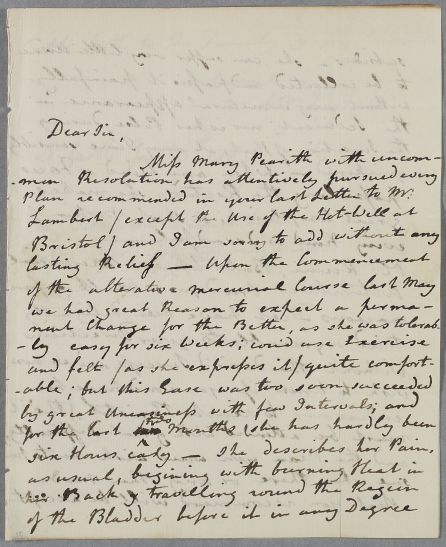 Dear Sir,
Miss Mary Pearith with uncom-
-mon Resolution has attentively pursued every
Plan recommended in your last Letter to Mr.
Lambert / except the Use of the Hot-Well at
Bristol / and I am sorry to add without any
lasting Relief — Upon the Commencement
of the alterative mercurial Course last May
we had great Reason to expect a perma-
nent Change for the Better, as she was tolerab-
-ly easy for six Weeks; could use Exercise
and felt / as she expresses it / quite comfort-
-able; but this Ease was too soon succeeded
by great Uneasiness with few Intervals; and
for the last two Months she has hardly been
six Hours easy — she describes her Pain,
as usual, begining with burning Heat in
her Back & travelling round the Region
of the Bladder before it in any Degree